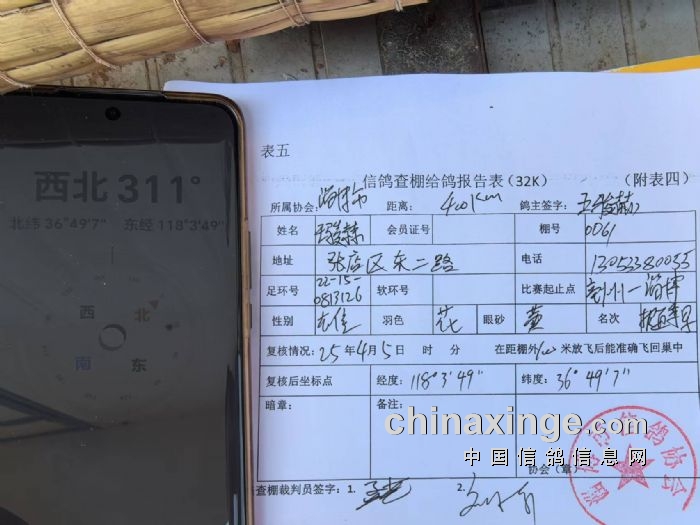 西北 311°
北纬 36°49'7" 东经 118°3'49"
西 北
南 东
表五
信鸽查棚给鸽报告表（32K） （附表四）
所属协会: 淄博市 距离: 400km 鸽主签字:
姓名 会员证号 棚号 0061
地址 张店区东二路 电话 13053380035
足环号 22-15-0813126 软环号 比赛起止点
性别 羽色 花 眼砂 黄 名次
复核情况: 25年4月5日 时 分 在距棚外 米放飞后能准确飞回巢中
复核后坐标点 经度: 118°3'49" 纬度: 36°49'7"
暗章: 备注:
chinaxinge.com
中国信鸽信息网
协会（章）
查棚裁判员签字: 1. 2.
淄博市信鸽协会